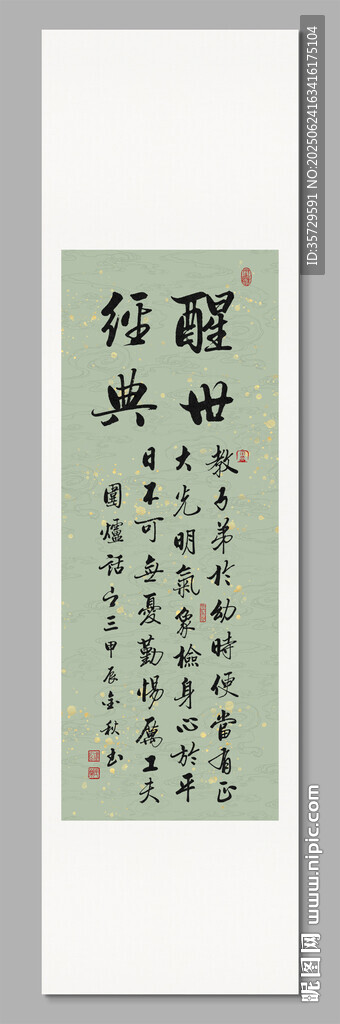 醒世
經典
教子弟於幼時便當有正
大光明氣象檢身心於平
日不可無憂勤惕厲工夫
圍爐話之三甲辰金秋書
ID:35729591 NO:20250624163416175104
昵图网 www.nipic.com